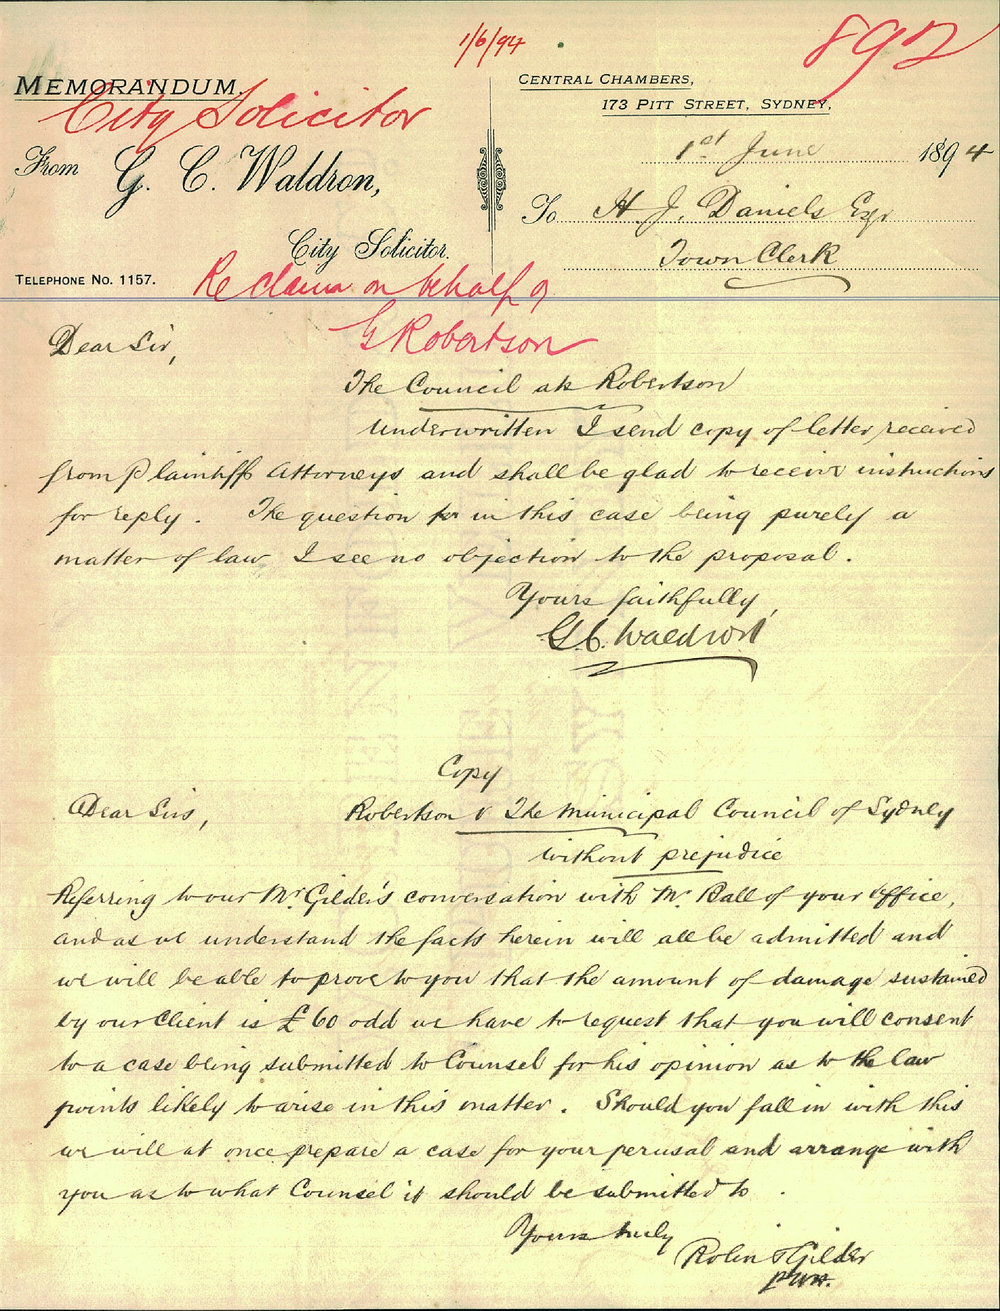 1/6/94
892
MEMORANDUM.
City Solicitor
From G. C. Waldron,
City Solicitor.
TELEPHONE NO. 1157.
CENTRAL CHAMBERS,
173 PITT STREET, SYDNEY,
1st June 1894
To H. J. Daniels Esqr
Town Clerk
Re claim on behalf of
G Robertson
Dear Sir,
The Council ats Robertson
Underwritten I send copy of letter received
from Plaintiffs Attorneys and shall be glad to receive instructions
for reply. The question in this case being purely a
matter of law I see no objection to the proposal.
Yours faithfully,
G. C. Waldron
Copy
Dear Sirs,
Robertson v The Municipal Council of Sydney
without prejudice
Referring to our Mr Gilder's conversation with Mr. Ball of your office,
and as we understand the facts herein will all be admitted and
we will be able to prove to you that the amount of damage sustained
by our Client is £60 odd we have to request that you will consent
to a case being submitted to Counsel for his opinion as to the law
points likely to arise in this matter. Should you fall in with this
we will at once prepare a case for your perusal and arrange with
you as to what Counsel it should be submitted to.
Yours truly
Robin & Gilder